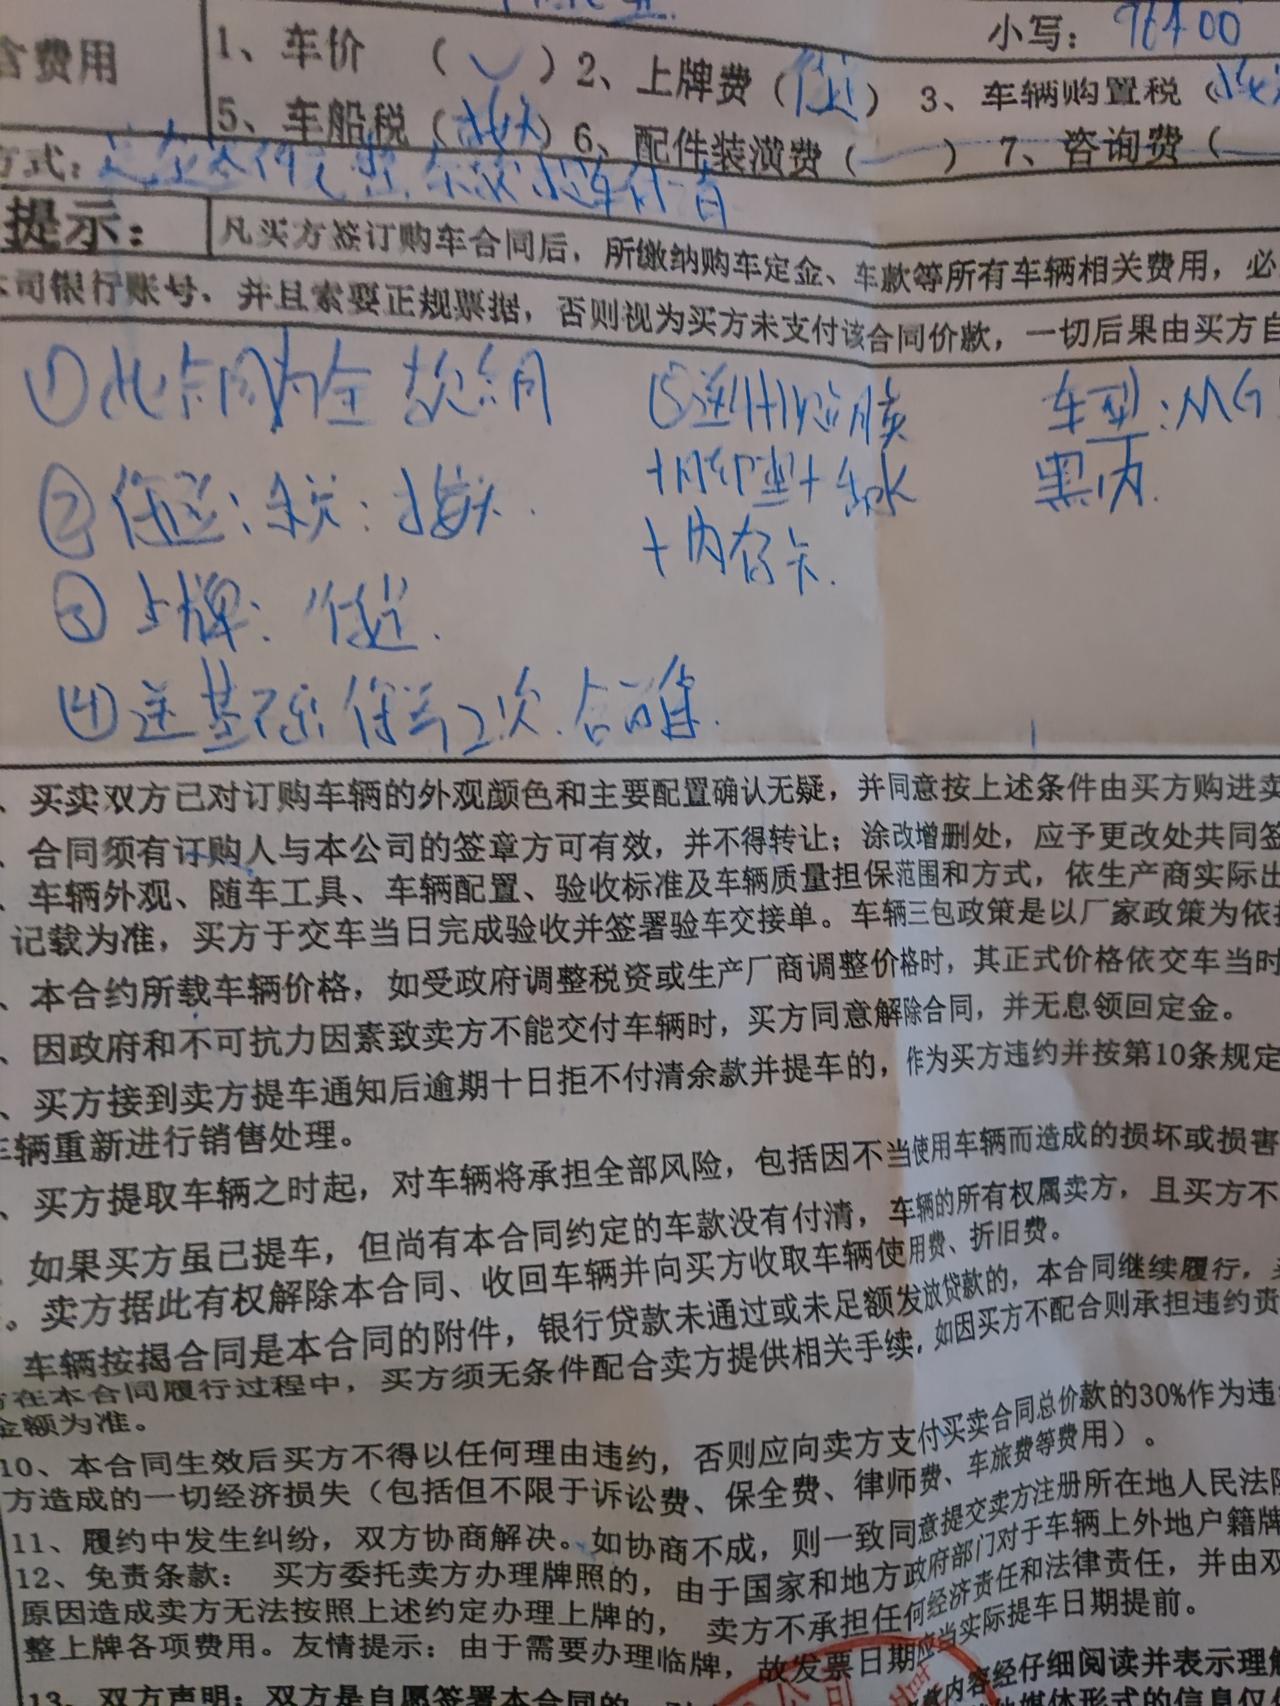 小写: 96400
含费用
1、车价 （✓）2、上牌费（保送）3、车辆购置税（
5、车船税（ ）6、配件装潢费（—）7、咨询费（—
方式:
提示:
凡买方签订购车合同后，所缴纳购车定金、车款等所有车辆相关费用，必
司银行账号，并且索要正规票据，否则视为买方未支付该合同价款，一切后果由买方自
①此合同为全款合同
⑤送 贴膜
车型:MG
+脚垫+
黑内.
②保送:
+内存卡.
③上牌:
④送基础保养2次.
、买卖双方已对订购车辆的外观颜色和主要配置确认无疑，并同意按上述条件由买方购进卖
、合同须有订购人与本公司的签章方可有效，并不得转让；涂改增删处，应予更改处共同签
、车辆外观、随车工具、车辆配置、验收标准及车辆质量担保范围和方式，依生产商实际出
记载为准，买方于交车当日完成验收并签署验车交接单。车辆三包政策是以厂家政策为依
、本合约所载车辆价格，如受政府调整税资或生产厂商调整价格时，其正式价格依交车当时
、因政府和不可抗力因素致卖方不能交付车辆时，买方同意解除合同，并无息领回定金。
、买方接到卖方提车通知后逾期十日拒不付清余款并提车的，作为买方违约并按第10条规定
车辆重新进行销售处理。
、买方提取车辆之时起，对车辆将承担全部风险，包括因不当使用车辆而造成的损坏或损害
、如果买方虽已提车，但尚有本合同约定的车款没有付清，车辆的所有权属卖方，且买方不
。卖方据此有权解除本合同、收回车辆并向买方收取车辆使用费、折旧费。
车辆按揭合同是本合同的附件，银行贷款未通过或未足额发放贷款的，本合同继续履行，
在本合同履行过程中，买方须无条件配合卖方提供相关手续，如因买方不配合则承担违约责
金额为准。
10、本合同生效后买方不得以任何理由违约，否则应向卖方支付买卖合同总价款的30%作为违
方造成的一切经济损失（包括但不限于诉讼费、保全费、律师费、车旅费等费用）。
11、履约中发生纠纷，双方协商解决。如协商不成，则一致同意提交卖方注册所在地人民法院
12、免责条款： 买方委托卖方办理牌照的，由于国家和地方政府部门对于车辆上外地户籍牌
原因造成卖方无法按照上述约定办理上牌的，卖方不承担任何经济责任和法律责任，并由双
整上牌各项费用。友情提示：由于需要办理临牌，故发票日期应当实际提车日期提前。
13、双方声明：双方是自愿签署本合同的， 内容经仔细阅读并表示理解
媒体形式的信息仅
公司